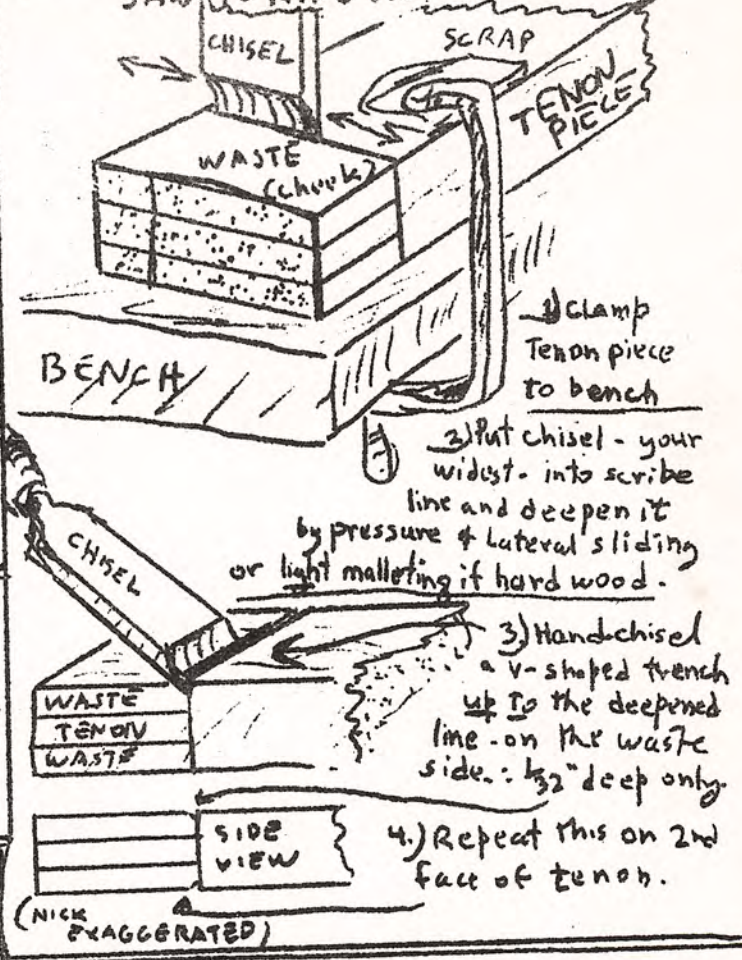 CHISEL
SCRAP
TENON
PIECE
WASTE
(cheek)
BENCH
1) Clamp
Tenon piece
to bench
2) Put chisel - your
widest - into scribe
line and deepen it
by pressure & Lateral sliding
or light malleting if hard wood.
CHISEL
3) Hand-chisel
a v-shaped trench
up to the deepened
line - on the waste
side. : 1/32" deep only.
WASTE
TENON
WASTE
SIDE
VIEW
4.) Repeat this on 2nd
face of tenon.
(NICK
EXAGGERATED)